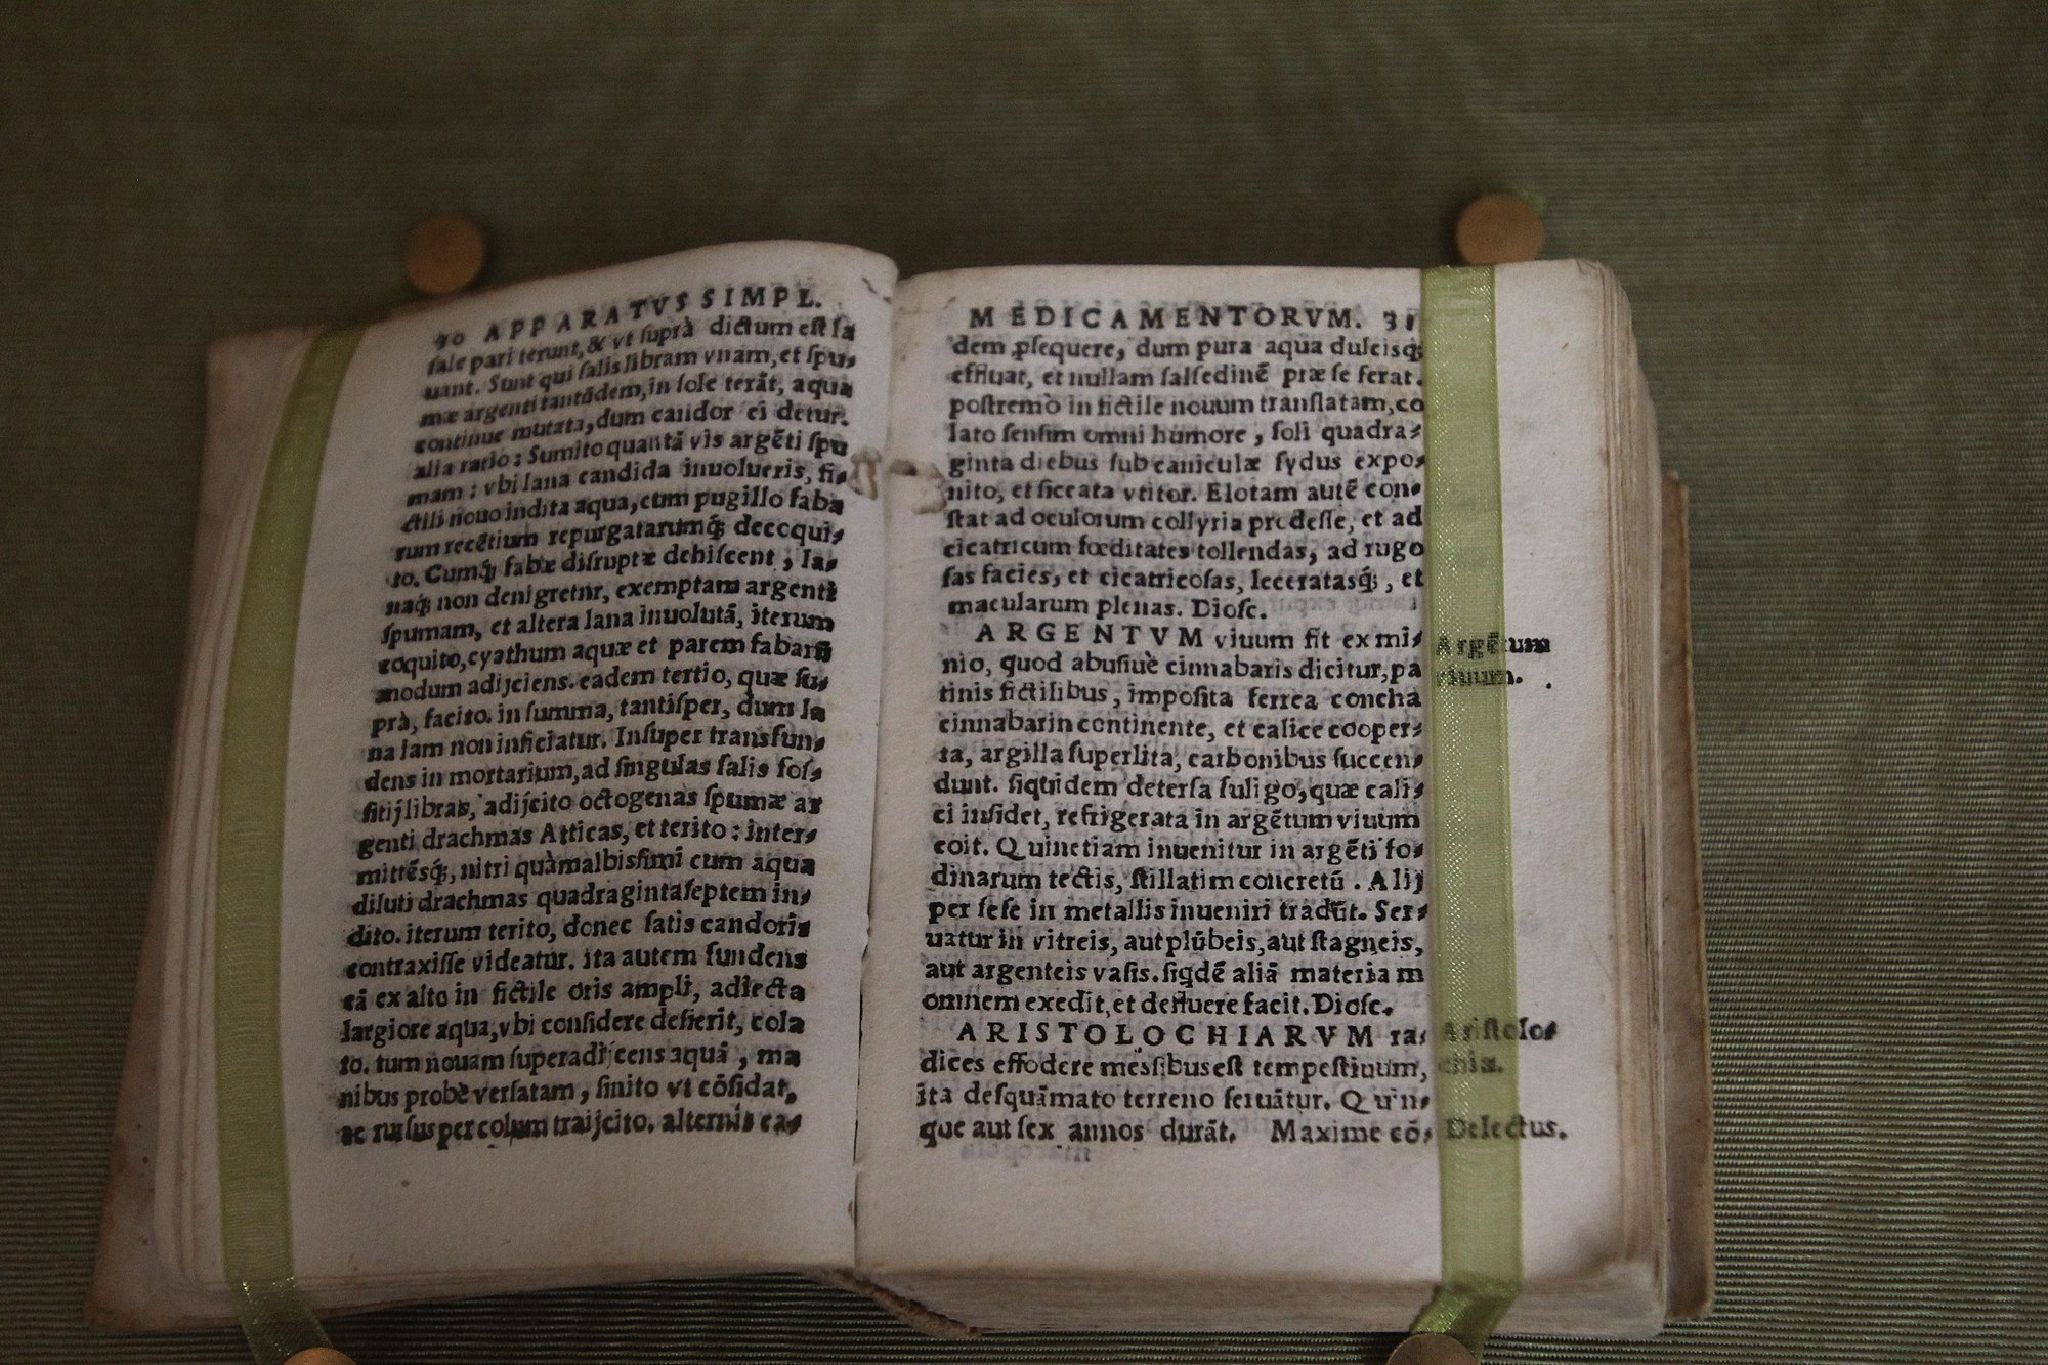 30 APPARATVS SIMPL.
sale pari terunt, & vt suprà dictum est la
uant. Sunt qui salis libram vnam, et spu-
mæ argenti tantũdem, in sole terãt, aqua
continue mutata, dum candor ei detur.
alia ratio: Sumito quantã vis argẽti spu
mam: vbi lana candida inuolueris, fi-
ctili nouo indita aqua, cum pugillo faba
rum recẽtium repurgatarumq́; decoqui-
to. Cumq́; fabæ disruptæ dehiscent, la-
naq́; non denigretnr, exemptam argenti
spumam, et altera lana inuolutã, iterum
coquito, cyathum aquæ et parem fabarũ
modum adijciens. eadem tertio, quæ su-
prà, facito. in summa, tantisper, dum la
na iam non inficiatur. Insuper transfun-
dens in mortarium, ad singulas salis fos-
sitij libras, adijcito octogenas spumæ ar
genti drachmas Atticas, et terito: inter-
mittẽsq́;, nitri quàmalbissimi cum aqua
diluti drachmas quadragintaseptem in-
dito. iterum terito, donec satis candoris
contraxisse videatur. ita autem fundens
eã ex alto in fictile oris ampli, adiecta
largiore aqua, vbi considere desierit, cola
to. tum nouam superadijcens aquã, ma
nibus probè versatam, sinito vt cõsidat,
ac rursus per colum traijcito. alternis ea-
MEDICAMENTORVM. 31
dem ꝓsequere, dum pura aqua dulcisq́;
effluat, et nullam salsedinẽ præ se ferat.
postremò in fictile nouum translatam, co
lato sensim omni humore, soli quadra-
ginta diebus sub caniculæ sydus expo-
nito, et siccata vtitor. Elotam autẽ con-
stat ad oculorum collyria prodesse, et ad
cicatricum fœditates tollendas, ad rugo
sas facies, et cicatricosas, leceratasq́;, et
macularum plenas. Diosc.
ARGENTVM viuum fit ex mi-
nio, quod abusiuè cinnabaris dicitur, pa
tinis fictilibus, imposita ferrea concha
cinnabarin continente, et calice cooper-
ta, argilla superlita, carbonibus succen-
dunt. siquidem detersa fuligo, quæ cali-
ci insidet, refrigerata in argẽtum viuum
coit. Quinetiam inuenitur in argẽti fo-
dinarum tectis, stillatim concretũ. Alij
per sese in metallis inueniri tradũt. Ser-
uatur in vitreis, aut plũbeis, aut stagneis,
aut argenteis vasis. siqdẽ aliã materiam
omnem exedit, et defluere facit. Diosc.
ARISTOLOCHIARVM ra-
dices effodere messibus est tempestiuum,
ita desquãmato terreno seruãtur. Quin-
que aut sex annos durãt. Maxime cõ-
Argẽtum
viuum.
Aristolo-
chia.
Delectus.